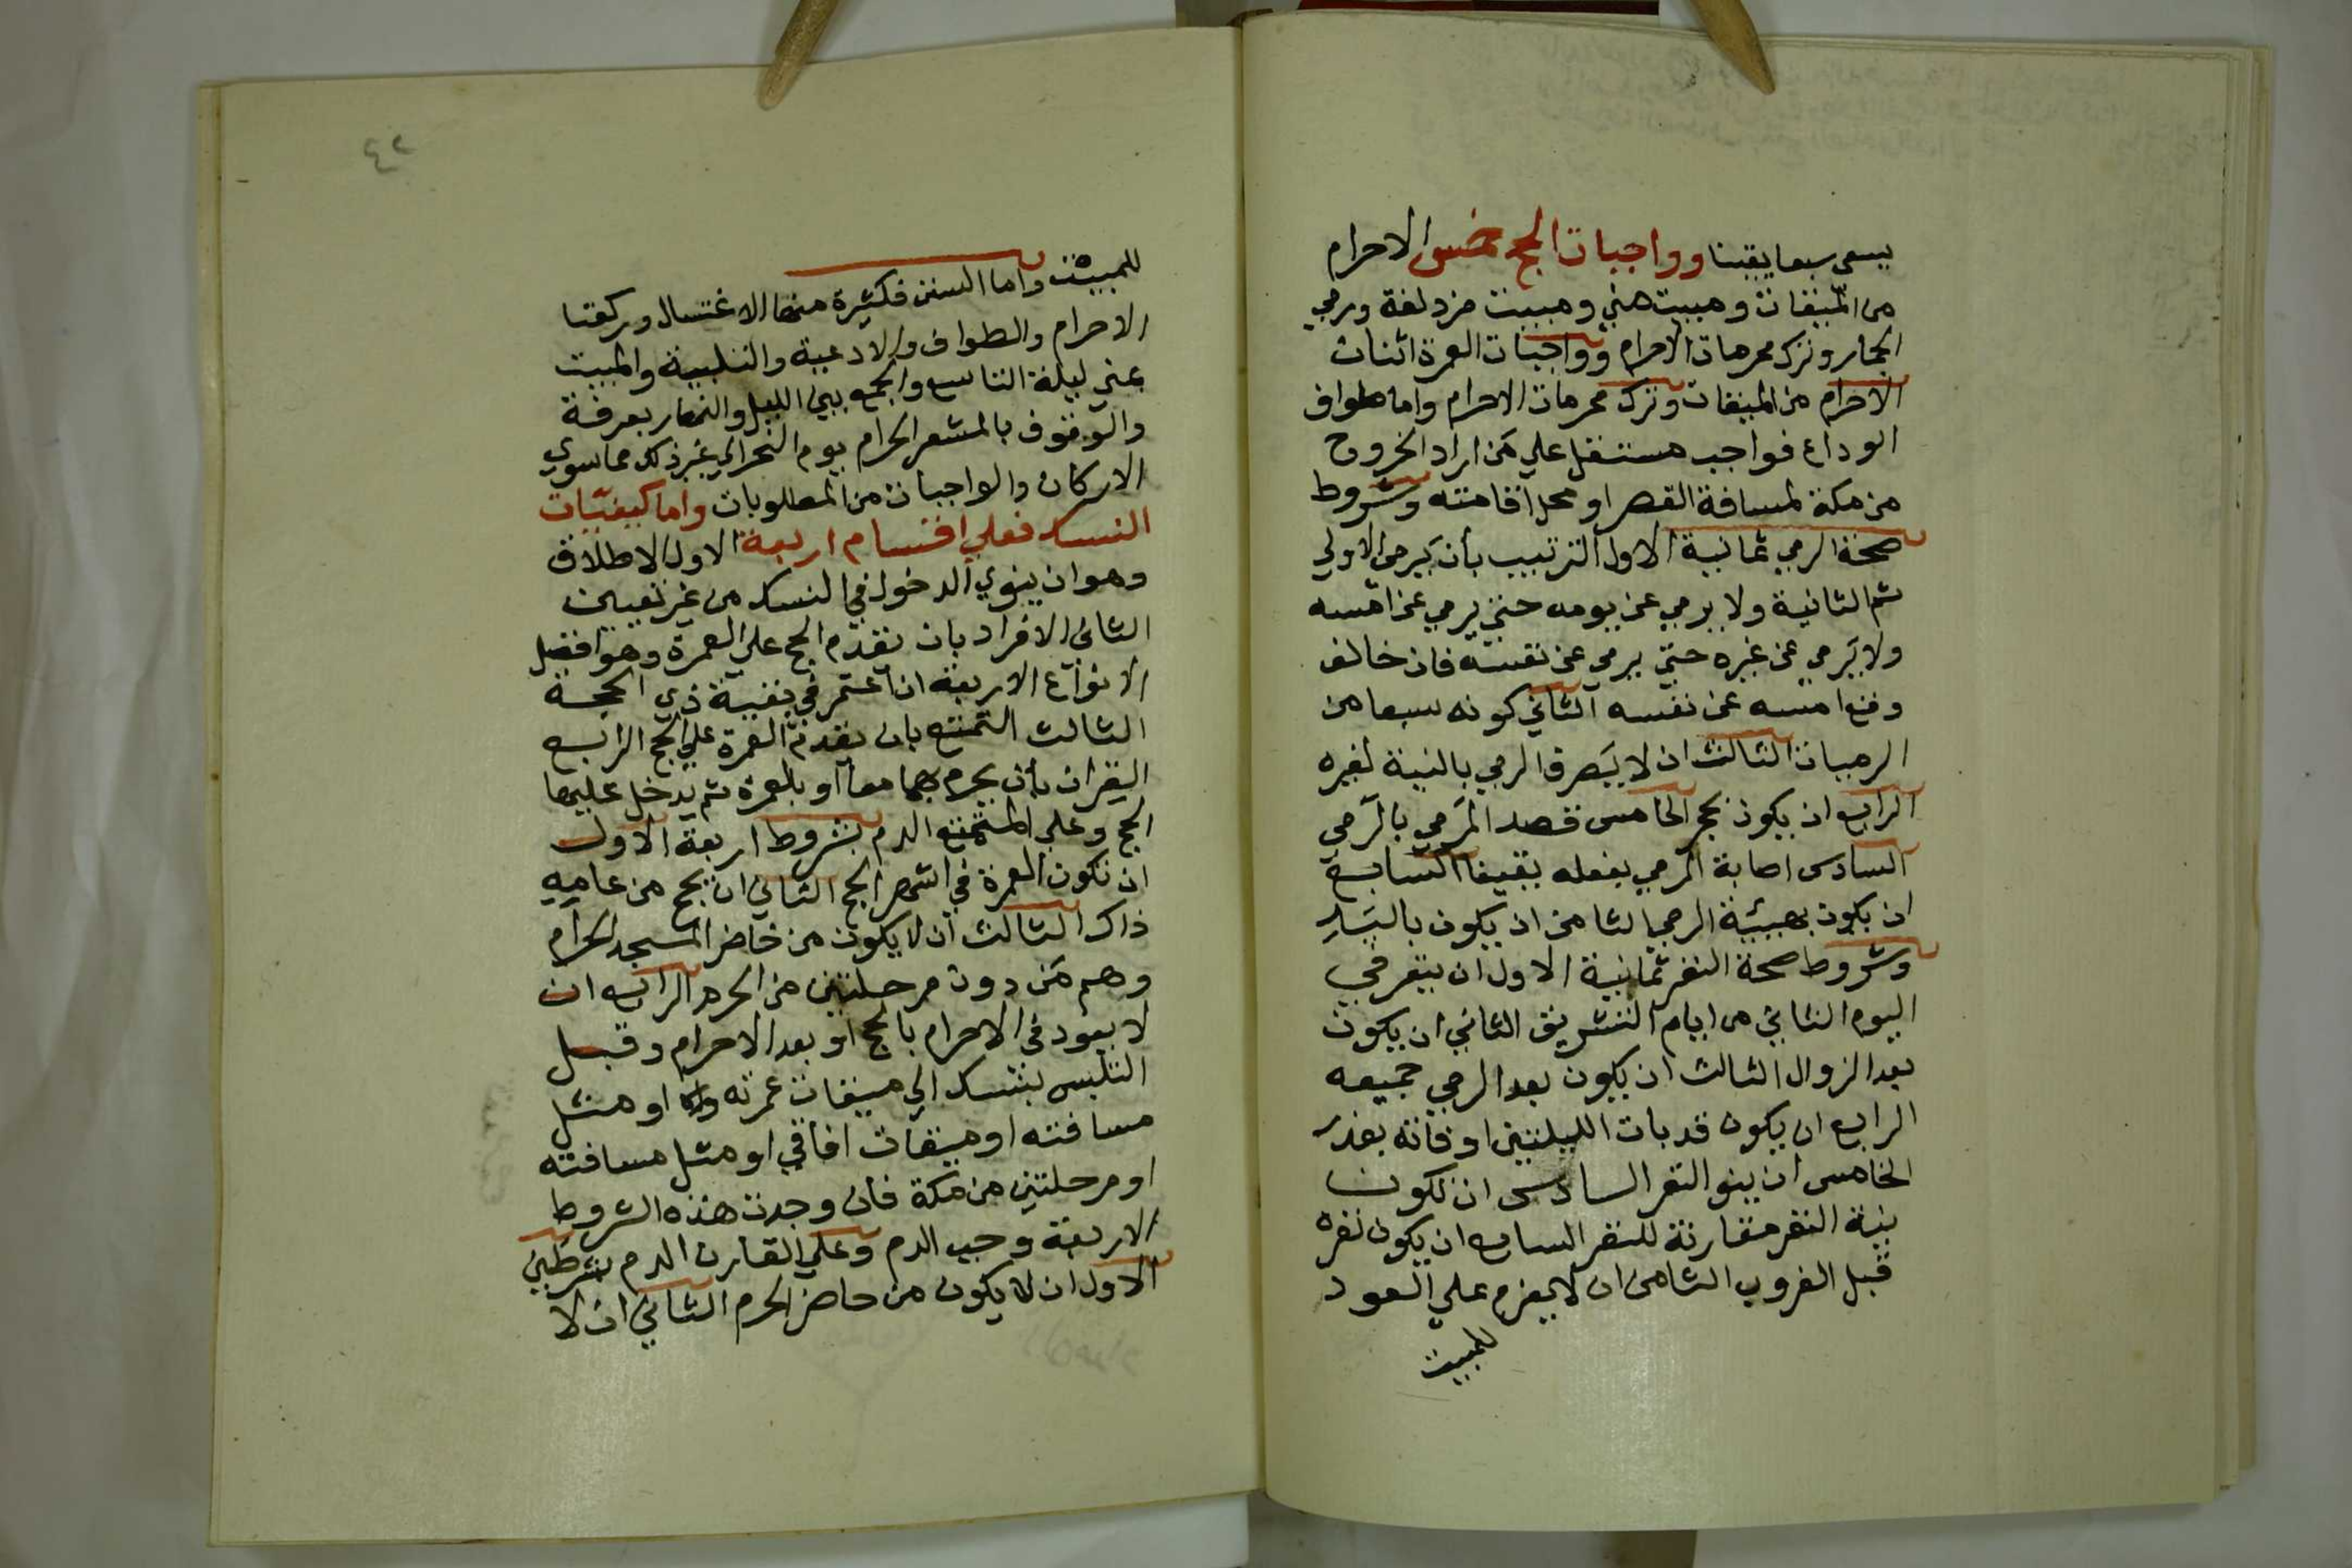 يسعى سبعا يقينا وواجبات الحج خمس الاحرام
من الميقات ومبيت منى ومبيت مزدلفة ورمي
الجمار وترك محرمات الاحرام وواجبات العمرة اثنان
الاحرام من الميقات وترك محرمات الاحرام واما طواف
الوداع فواجب مستقل علي من اراد الخروج
من مكة لمسافة القصر او محل اقامته وشروط
صحة الرمي ثمانية الاول الترتيب بأن يرمي الاولي
ثم الثانية ولا يرمي عن يومه حتي يرمي عن امسه
ولا يرمي عن غيره حتي يرمي عن نفسه فان خالف
وقع امسه عن نفسه الثاني كونه سبعا من
الرميات الثالث ان لا يصرف الرمي بالنية لغيره
الرابع ان يكون بحجر الخامس قصد المرمي بالرمي
السادس اصابة المرمي بفعله يقينا السابع
ان يكون بهيئة الرمي الثامن ان يكون باليد
وشروط صحة النفر ثمانية الاول ان ينفر في
اليوم الثاني من ايام التشريق الثاني ان يكون
بعد الزوال الثالث ان يكون بعد الرمي جميعه
الرابع ان يكون قد بات الليلتين او فاته بعذر
الخامس ان ينو النفر السادس ان تكون
نية النفر مقارنة للنفر السابع ان يكون نفره
قبل الغروب الثامن ان لا يعزم علي العود
للمبيت
٤٢
للمبيت واما السنن فكثيرة منها الاغتسال وركعتا
الاحرام والطواف والادعية والتلبية والمبيت
بمنى ليلة التاسع والجمع بين الليل والنهار بعرفة
والوقوف بالمشعر الحرام يوم النحر الي غير ذلك مما سوي
الاركان والواجبات من المطلوبات واما كيفيات
النسك فعلي اقسام اربعة الاول الاطلاق
وهو ان ينوي الدخول في النسك من غير تعيين
الثاني الافراد بان يقدم الحج علي العمرة وهو افضل
الانواع الاربعة ان اعتمر في بقية ذي الحجة
الثالث التمتع بان يقدم العمرة علي الحج الرابع
القران بأن يحرم بهما معا او بالعمرة ثم يدخل عليها
الحج وعلي المتمتع الدم بشروط اربعة الاول
ان تكون العمرة في اشهر الحج الثاني ان يحج من عامه
ذاك الثالث ان لا يكون من حاضر المسجد الحرام
وهم من دون مرحلتين من الحرم الرابع ان
لا يعود في الاحرام بالحج او بعد الاحرام وقبل
التلبس بنسك الي ميقات عمرته او مثل
مسافته او ميقات افاقي او مثل مسافته
او مرحلتين من مكة فان وجدت هذه الشروط
الاربعة وجب الدم وعلي القارن الدم بشرطين
الاول ان لا يكون من حاضر الحرم الثاني ان لا